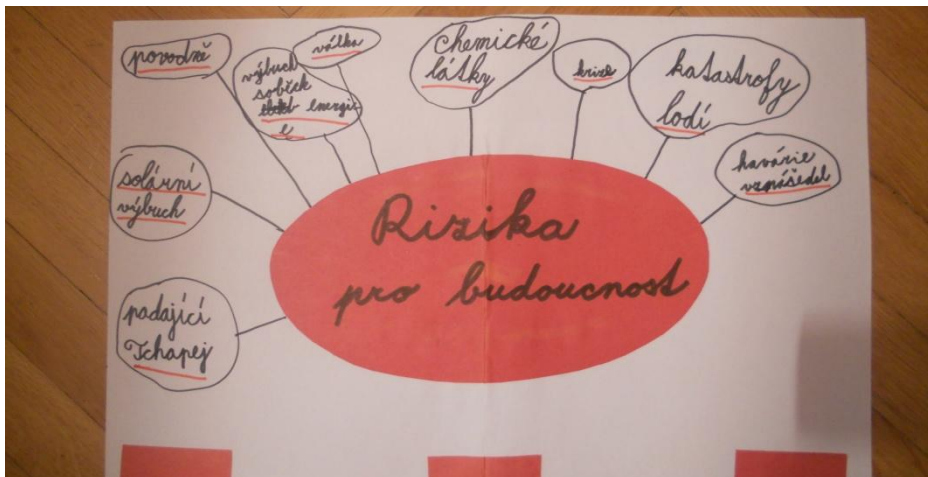 povodně
výbuch
sobček
energi
e
válka
chemické
látky
krize
katastrofy
lodí
havárie
vznášedel
solární
výbuch
padající
Tchapej
Rizika
pro budoucnost